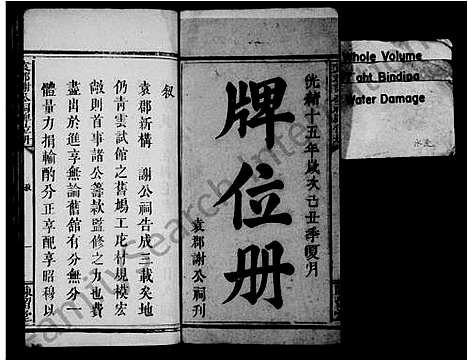 光緒十五年歲次己丑季夏月
牌位册
袁郡謝公祠刊
敘
袁郡新構 謝公祠告成三載矣地
仍青雲試館之舊塲工庀材規模宏
敞則首事諸公籌款監修之力也費
盡出於進享無論舊館有分無分一
體量力捐輸酌分正享配享昭穆以
Whole Volume
Tight Binding
Water Damage
水走
FamilySearch International